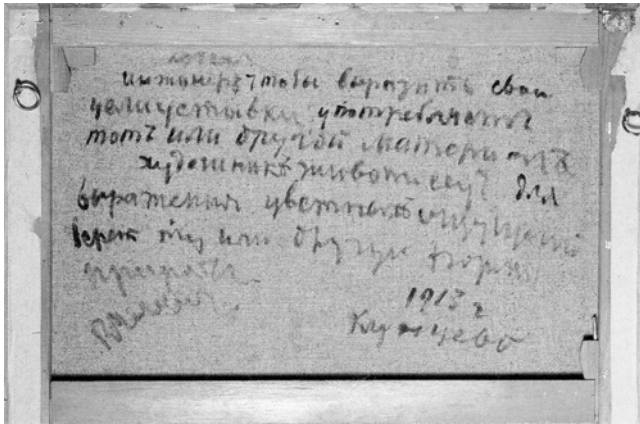 инженеръ чтобы выразить свои
цели употребляетъ
тотъ или другой материалъ
художникъ живописец для
выражения цветныхъ ощущений
берет ту или другую форму
природы
КМалевич
1913 г
Кунцево